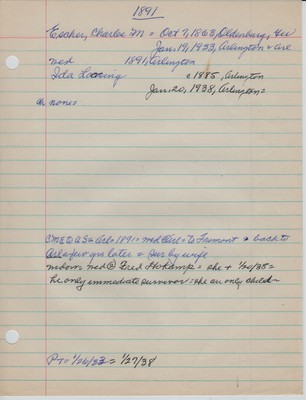 1891
Escher, Charles M = Oct 7, 1863, Oldenburg, Ger
Jan. 19, 1933, Arlington + Arl
med 1891, Arlington
Ida Looring c 1885, Arlington
Jan. 20, 1938, Arlington =
ch none
CME to US = Arl = 1891 = med @ Arl = to Fremont = back to
Arl a few yrs later = sur by wife
widow med @ Fred Hokamp = she + 1/20/38 =
he only immediate survivor = she an only child =
PT = 1/26/33 = 1/27/38